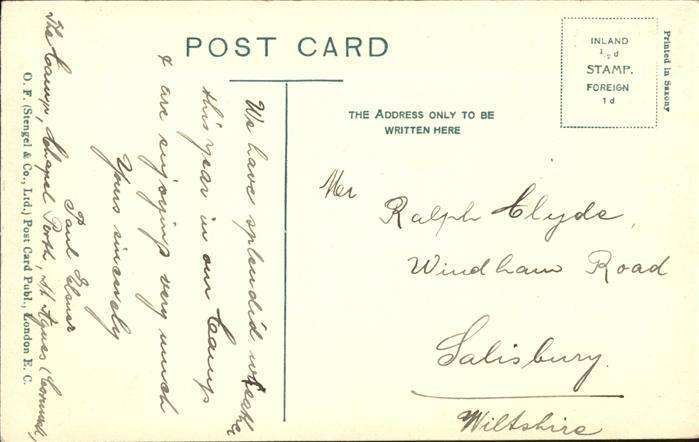 POST CARD
THE ADDRESS ONLY TO BE
WRITTEN HERE
INLAND
½d
STAMP.
FOREIGN
1d
Printed in Saxony
Ralph Clyde,
Windham Road
Salisbury.
Wiltshire
We have splendid weather
this year in our Camp
& are enjoying very much
Yours sincerely
Paul
The Camp, Chapel Porth, St Agnes (Cornwall,
O. F. (Stengel & Co., Ltd.) Post Card Publ., London E. C.